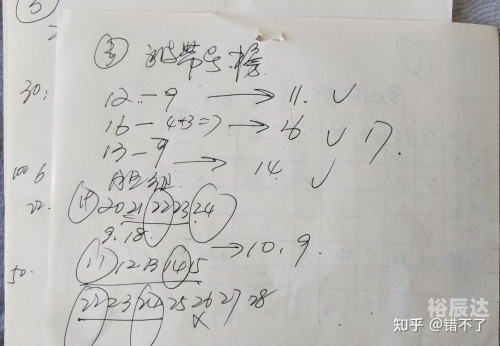 ③
12 - 9 → 11. ✓
16 - 4+3=7 → 26 ✓ 17.
13 - 9 → 14. ✓
30:
100 6
22.
19 20 21 22 23 24
9.18.
→ 10、9.
11 12 13 14 15
50.
22 23 24 25 26 27 28
X
裕辰达
知乎 @错不了